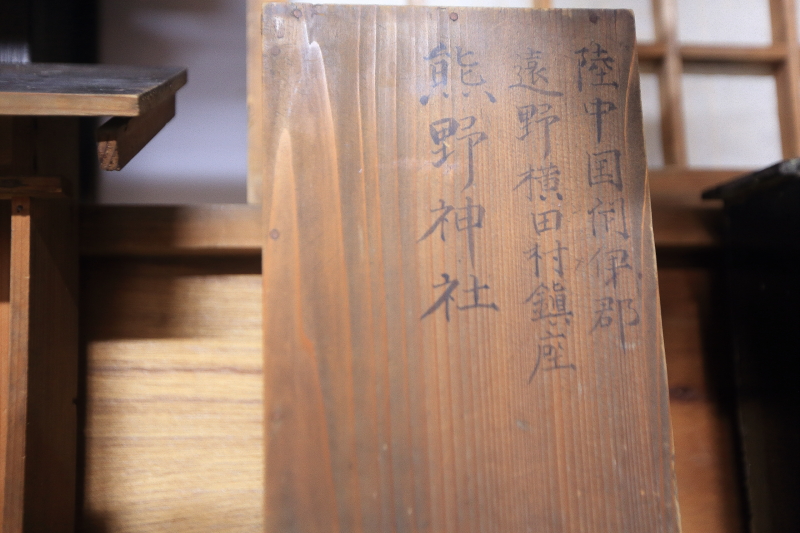 陸中国閉伊郡
遠野横田村鎮座
熊野神社